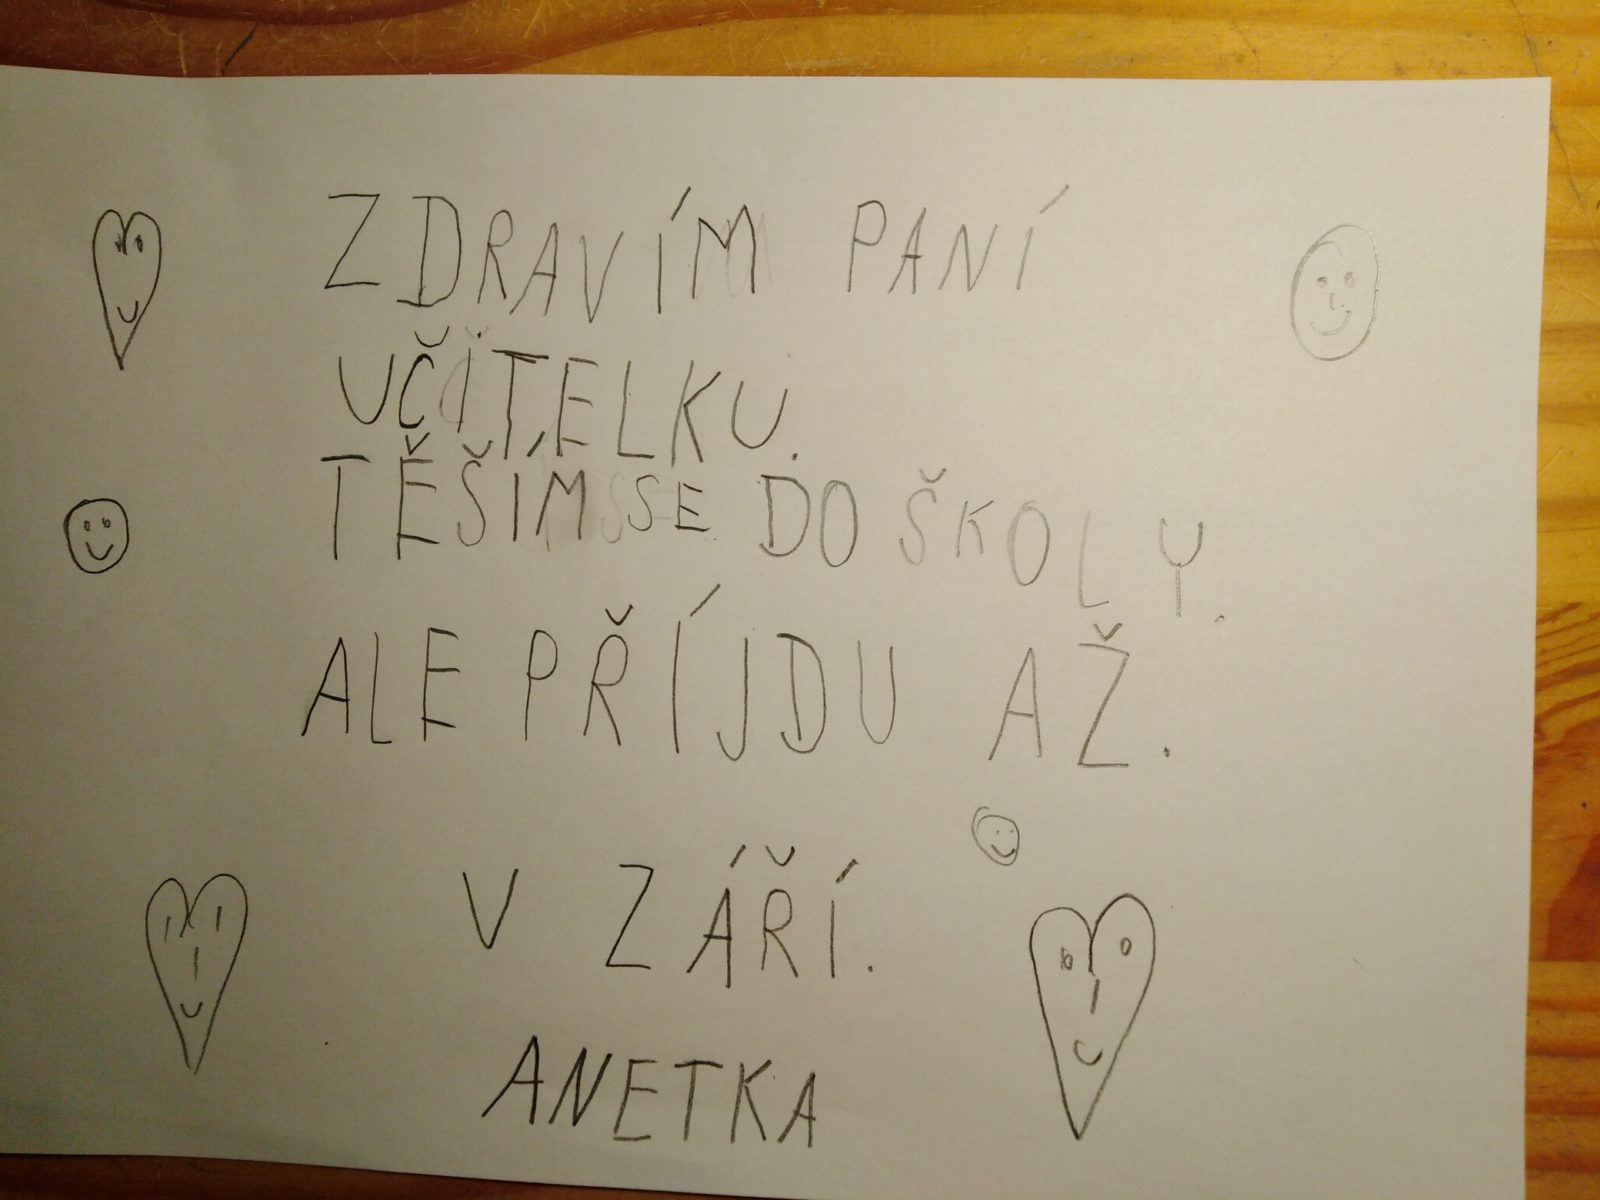 ZDRAVÍM PANÍ
UČITELKU.
TĚŠÍM SE DO ŠKOLY.
ALE PŘÍJDU AŽ.
V ZÁŘÍ.
ANETKA